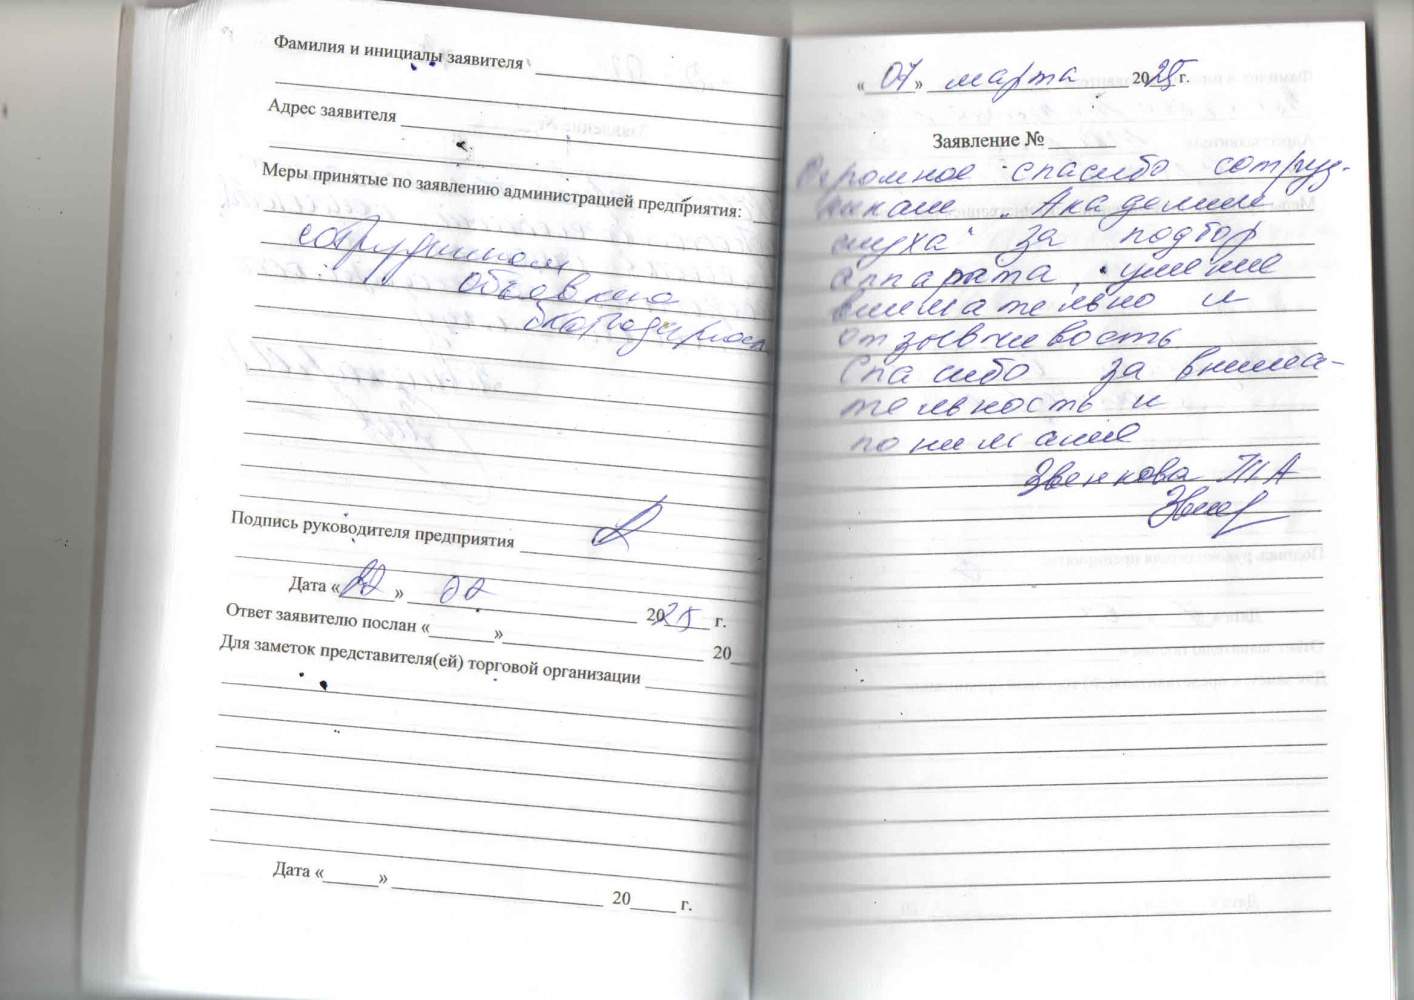 Фамилия и инициалы заявителя
Адрес заявителя
Меры принятые по заявлению администрацией предприятия:
сотрудникам
объявлена
благодарность
Подпись руководителя предприятия
Дата « » 2025 г.
Ответ заявителю послан « » 20
Для заметок представителя(ей) торговой организации
Дата « » 20 г.
« 07 » марта 2025 г.
Заявление №
Огромное спасибо сотруд-
никам „Академии
слуха“ за подбор
аппарата, умение
внимательно и
отзывчивость
Спасибо за внима-
тельность и
понимание
Звенкова ТА